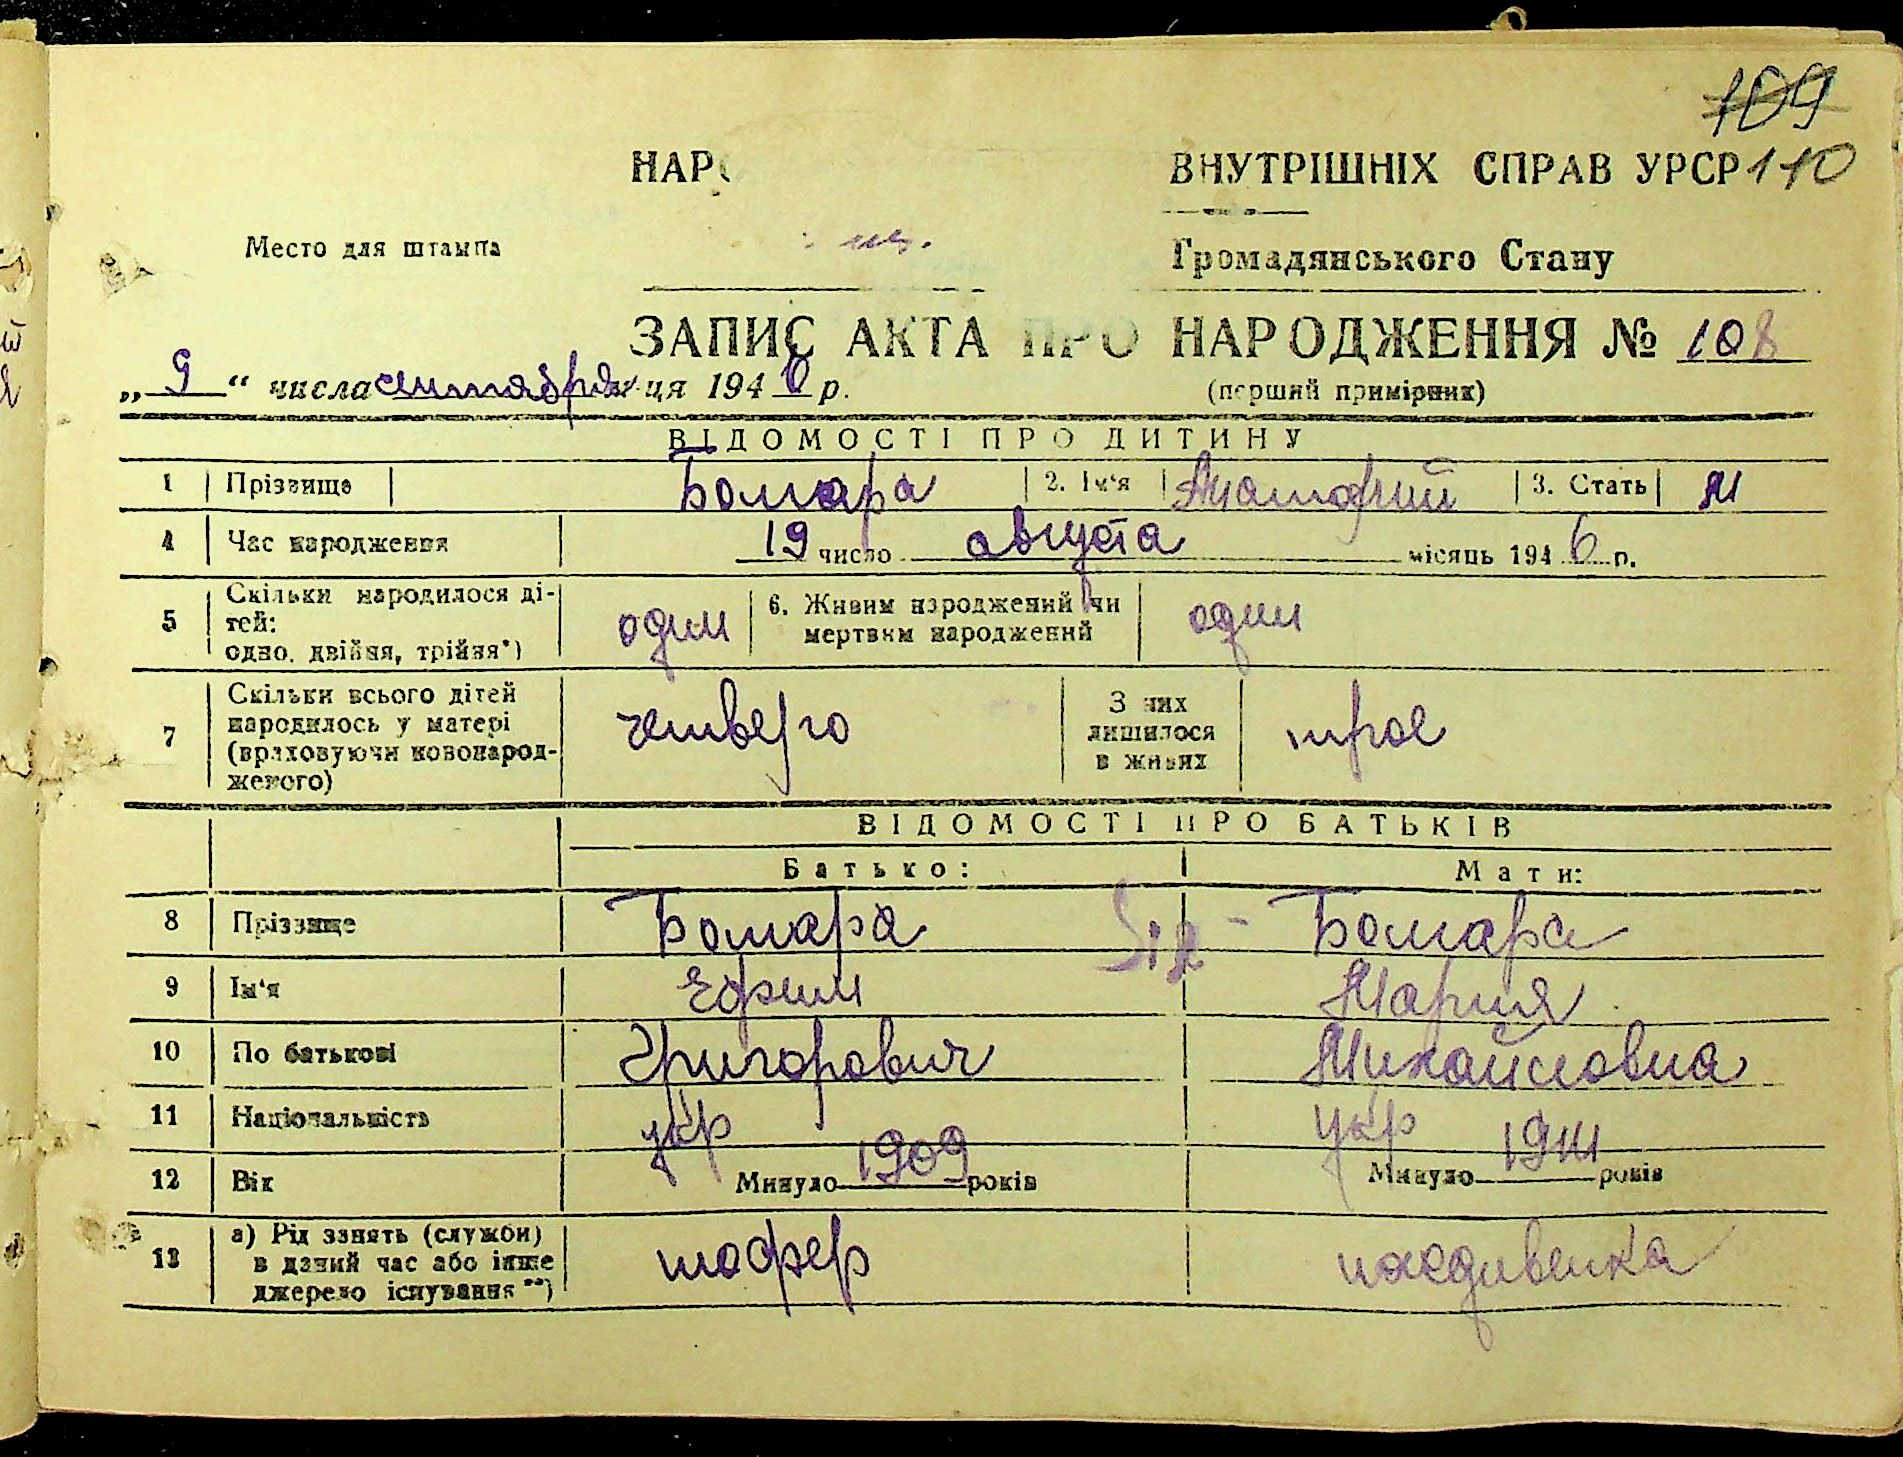 109
НАРО ВНУТРІШНІХ СПРАВ УРСР 110
Место для штампа
Громадянського Стану
ЗАПИС АКТА ПРО НАРОДЖЕННЯ № 108
„ 9 “ числа сентября ця 1946 р. (перший примірник)
ВІДОМОСТІ ПРО ДИТИНУ
1 Прізвище Бомара 2. Ім'я Анатолий 3. Стать М
4 Час народження 19 число августа місяць 1946 р.
5 Скільки народилося ді-
тей:
одно, двійня, трійня*) один 6. Живим народжений чи
мертвим народжений один
7 Скільки всього дітей
народилось у матері
(враховуючи новонарод-
женого) четверо З них
лишилося
в живих трое
ВІДОМОСТІ ПРО БАТЬКІВ
Батько: Мати:
8 Прізвище Бомара Бомара
9 Ім'я Ефим Мария
10 По батькові Григорович Михайловна
11 Національність укр укр
12 Вік Минуло 1909 років Минуло 1914 років
13 а) Рід занять (служби)
в даний час або інше
джерело існування**) шофер иждивенка